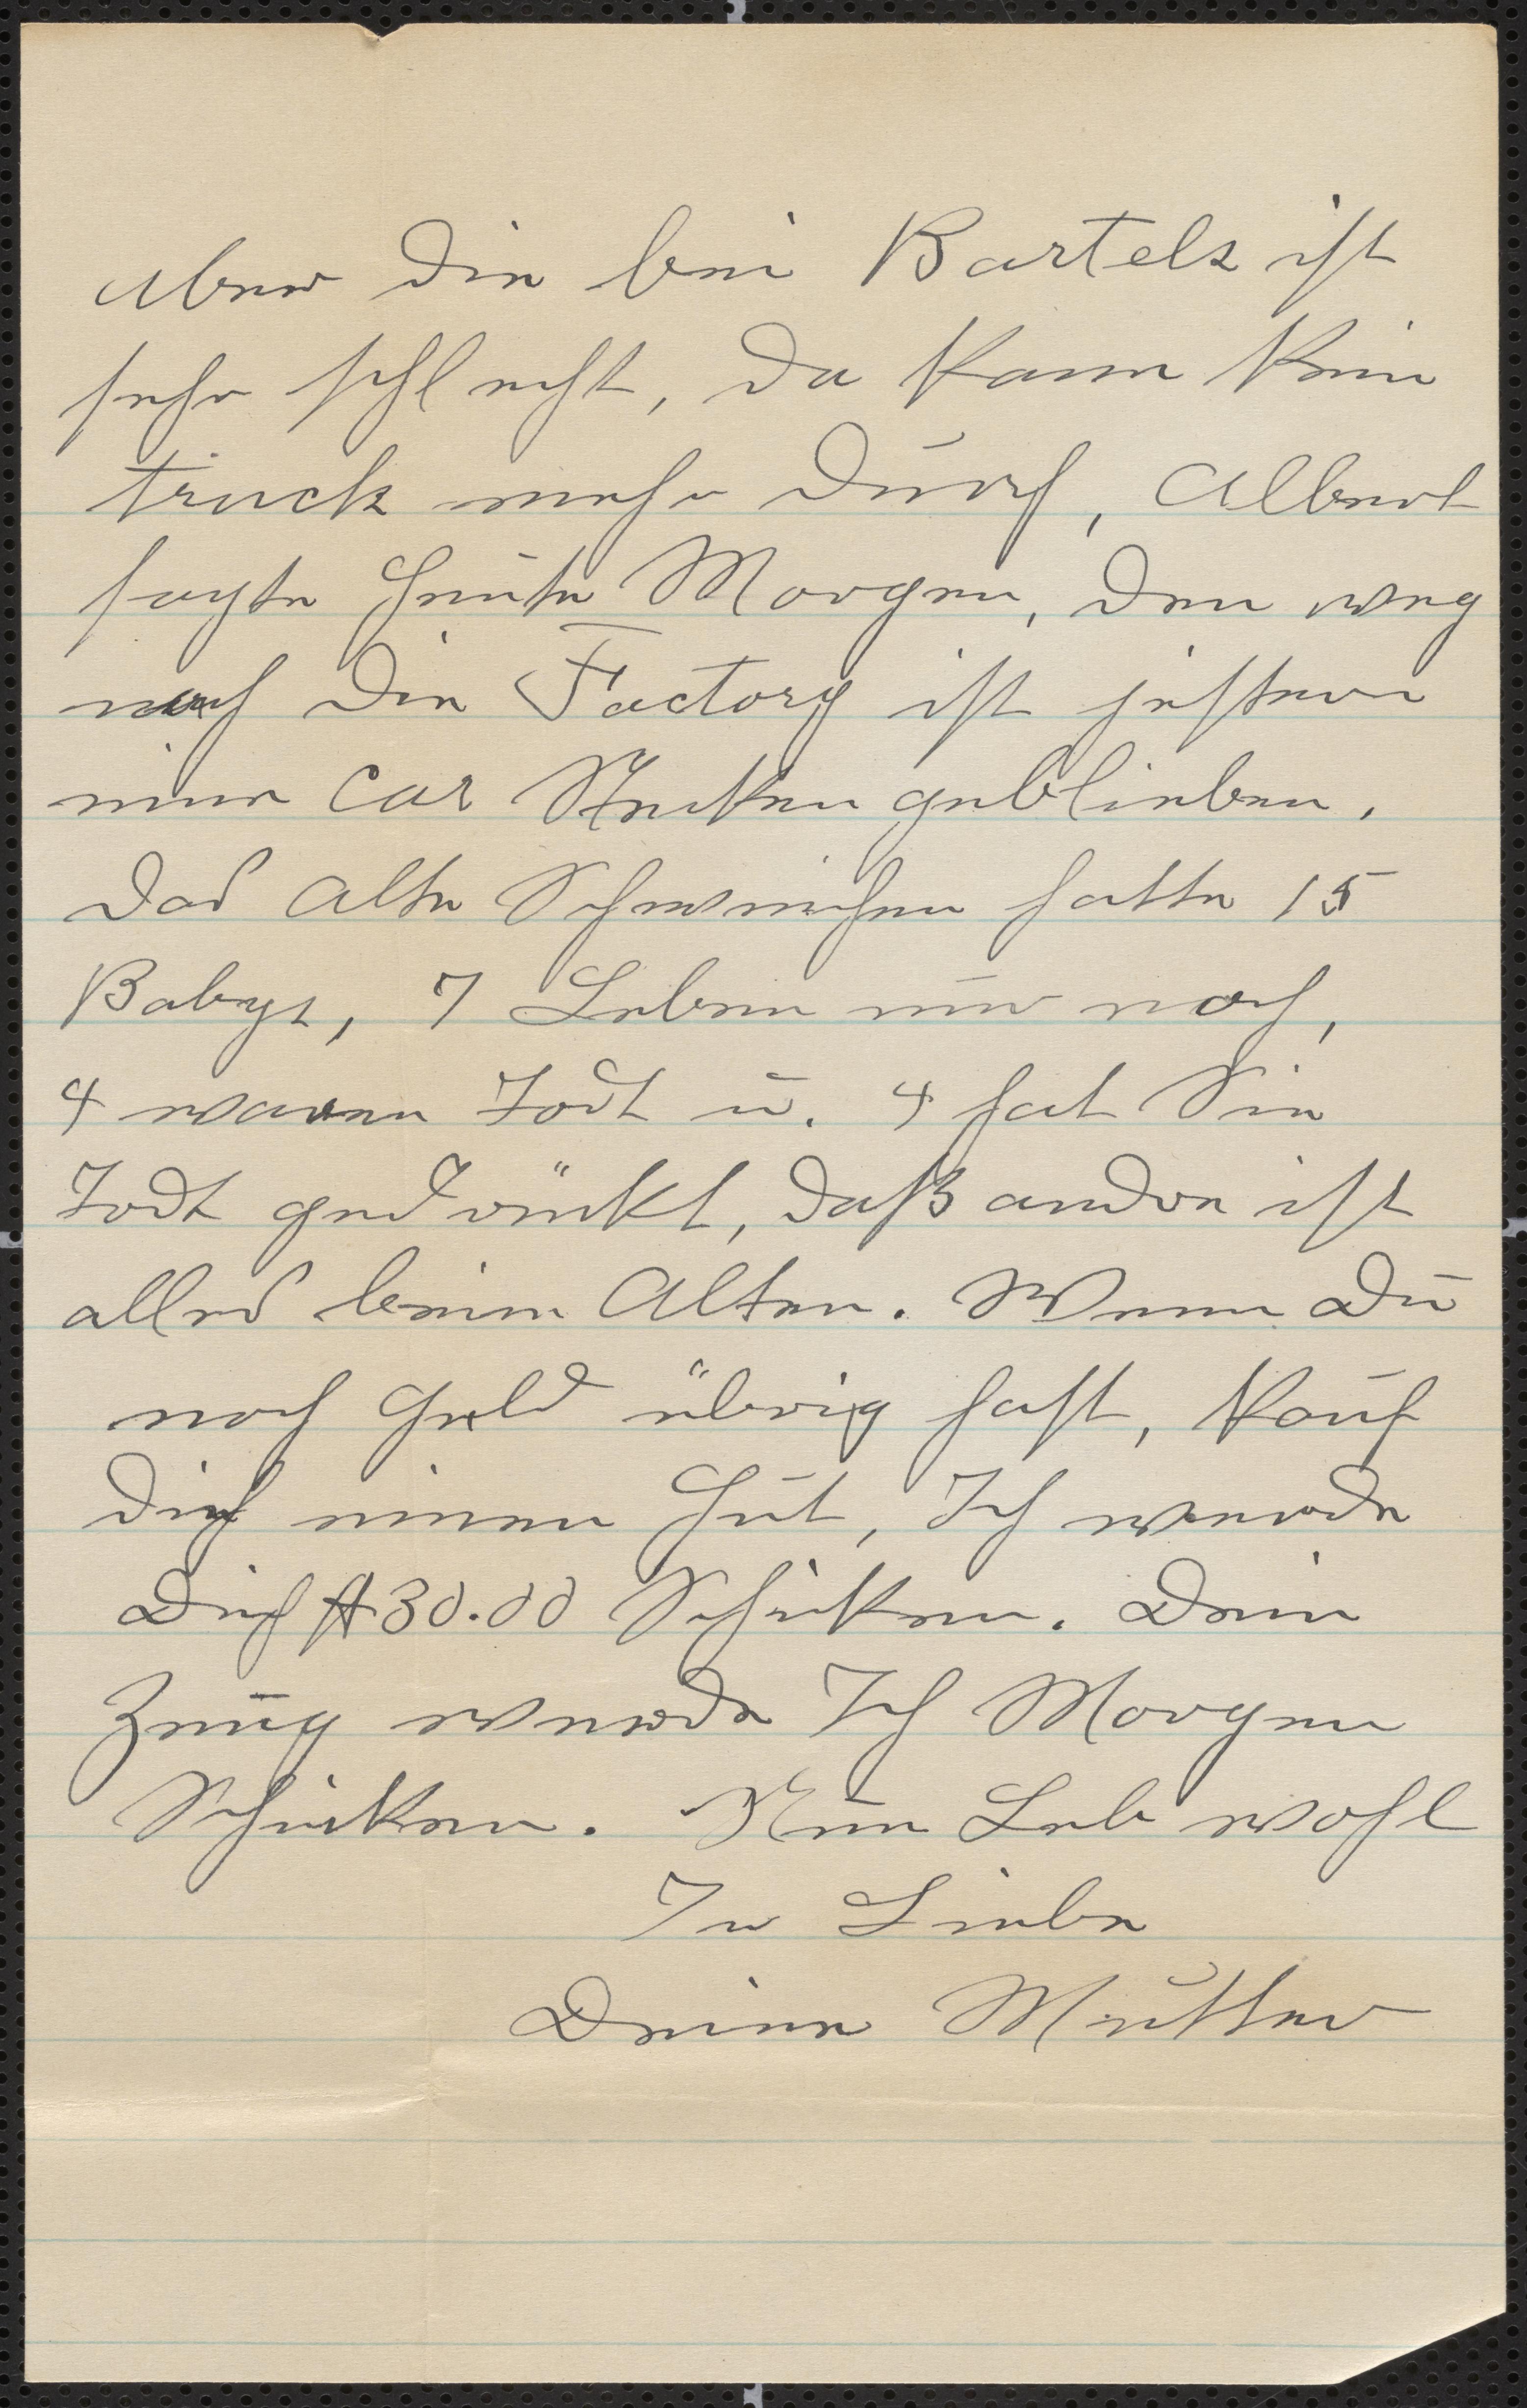 aber die bei Bartels ist
sehr schlecht, da kann kein
truck mehr durch, Albert
sagte heute Morgen, den weg
nach die Factory ist jestern
einer Car Stecken geblieben.
Das Alte Schweinchen hatte 15
Babys, 7 Leben nur noch,
4 waren Todt u. 4 hat Sie
Todt gedrückt, daß andre ist
alles beim Alten. Wenn Du
noch Geld übrig hast, kauf
dich einen Hut, Ich werde
Dich $30.00 Schicken. Dein
Zeug werde Ich Morgen
Schicken. Nun Leb wohl
In Liebe
Deine Mutter